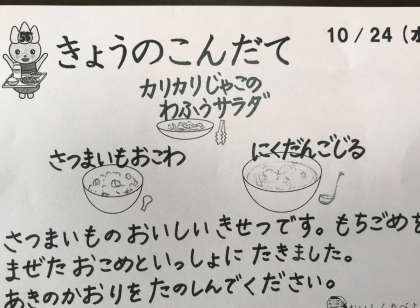 きょうのこんだて
10/24(水
カリカリじゃこの
わふうサラダ
さつまいもおこわ
にくだんごじる
さつまいものおいしいきせつです。もちごめを
まぜたおこめといっしょにたきました。
あきのかおりをたのしんでください。